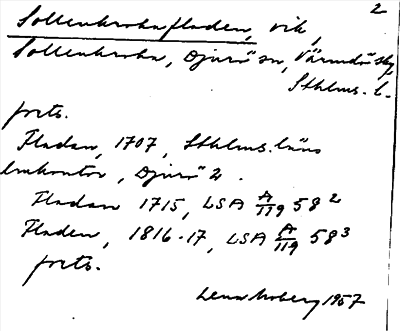 2
Sollenkrokafladen, vik,
Sollenkroka, Djurö sn, Värmdö skg,
Sthlms. l.
forts.
Fladan, 1707, Sthlms. läns
lmkontor, Djurö 2.
Fladan 1715, LSA A/119 58²
Fladen, 1816-17, LSA A/119 58³
forts.
Lena Moberg 1957